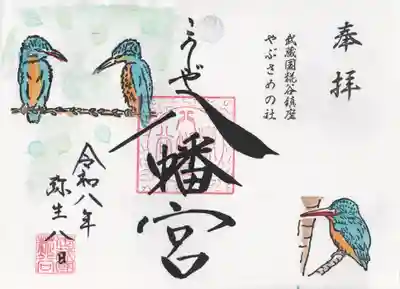 奉拝
武蔵国糀谷鎮座
やぶさめの社
こうじや
八幡宮
令和八年
弥生八日